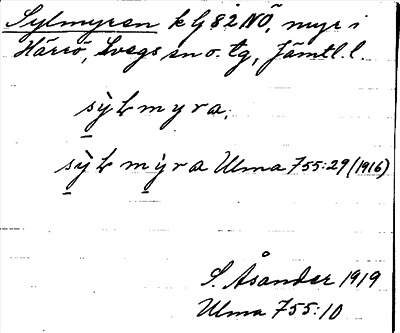 Sylmyran k G 82 NÖ, myr i
Härrö, Svegs sn o. tg, Jämtl. l.
sỳḷmyra.
sỳḷmỳra Ulma 755:29 (1916)
S. Åsander 1919
Ulma 755:10